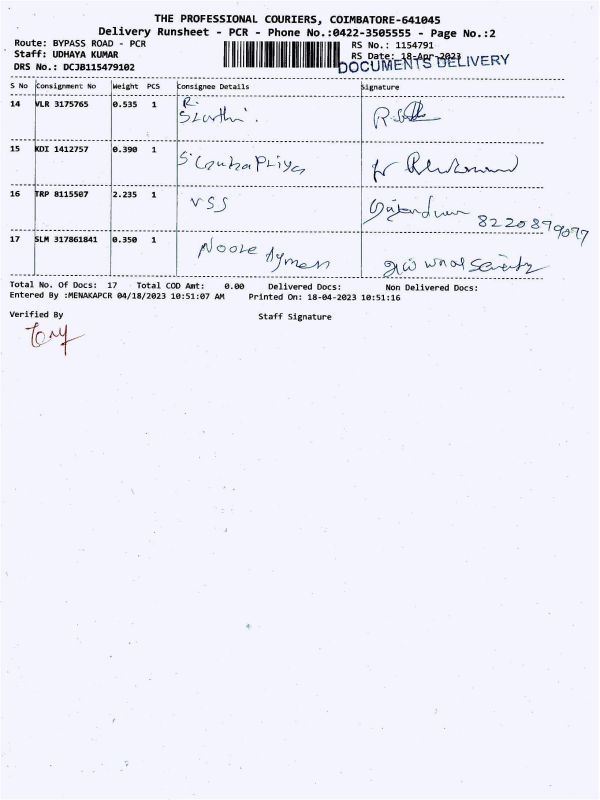 THE PROFESSIONAL COURIERS, COIMBATORE-641045
Delivery Runsheet - PCR - Phone No.:0422-3505555 - Page No.:2
Route: BYPASS ROAD - PCR
RS No.: 1154791
Staff: UDHAYA KUMAR
RS Date: 18-Apr-2023
DRS No.: DCJB115479102
DOCUMENTS DELIVERY
S No Consignment No Weight PCS Consignee Details Signature
14 VLR 3175765 0.535 1 R.
15 KDI 1412757 0.390 1
16 TRP 8115507 2.235 1 VSS
8220899077
17 SLM 317861841 0.350 1
Total No. Of Docs: 17 Total COD Amt: 0.00 Delivered Docs: Non Delivered Docs:
Entered By :MENAKAPCR 04/18/2023 10:51:07 AM Printed On: 18-04-2023 10:51:16
Verified By Staff Signature